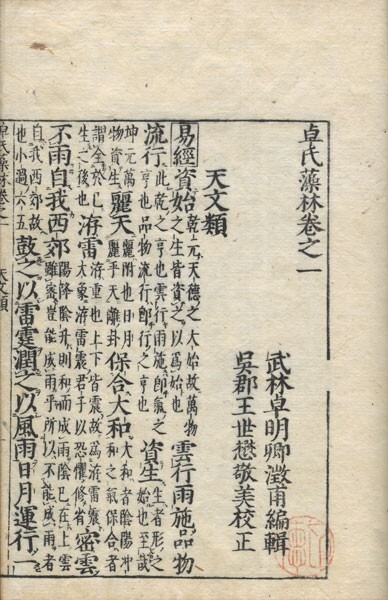 卓氏藻林卷之一
武林卓明卿澂甫編輯
吳郡王世懋敬美校正
天文類
易經資始乾元天德之大始故萬物之生皆資之以爲始也雲行雨施品物
流行此乾之亨也雲行雨施卽氣之亨也品物流行卽形之亨也資生生者形之始也至哉
坤元萬物資生麗天麗附也日月麗乎天離卦保合大和大和者陰陽冲和之氣保合者
謂全於已生之後也洊雷洊重也上下皆震故爲洊雷震大象洊雷震君子以恐懼修省密雲
不雨自我西郊陽降陰升則和而成雨陰已在上雲雖密豈能成雨乎所以不能成雨者
自我西郊故也小過六五鼓之以雷霆潤之以風雨日月運行一
卓氏藻林卷之一 天文類